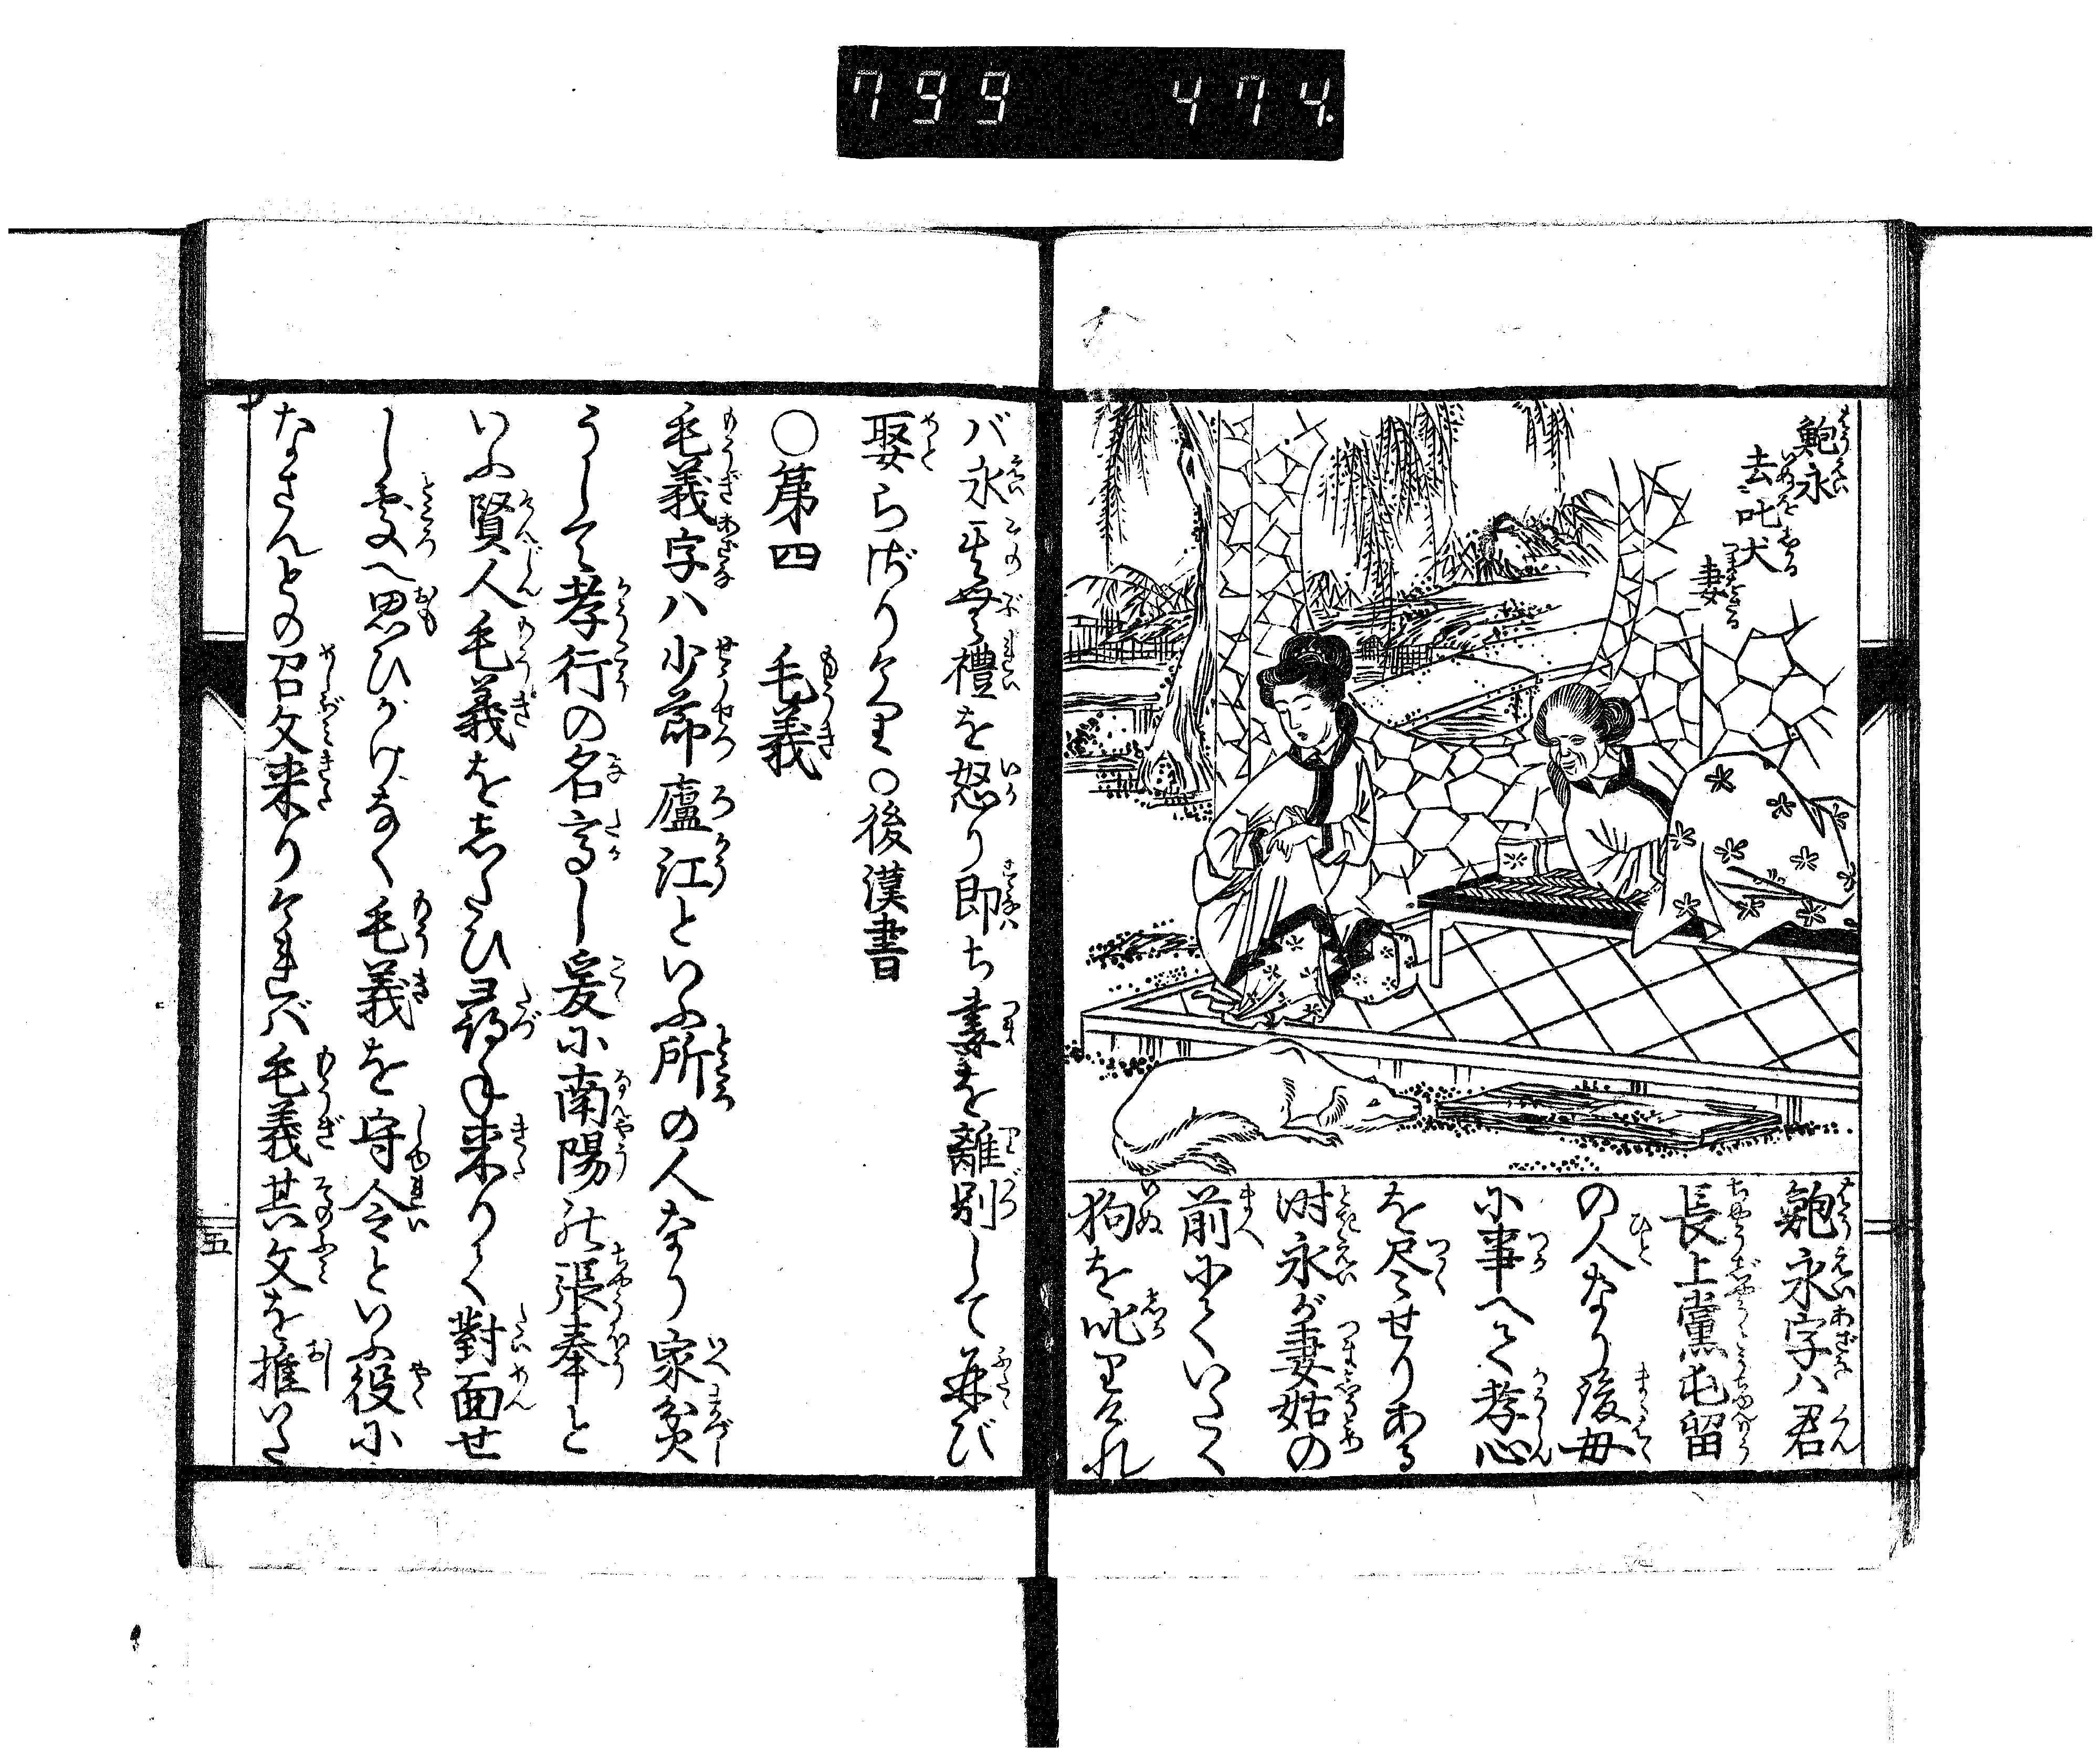 799 474.
鮑永
去叱犬
妻
鮑永字ハ君
長上黨屯留
の人なり後母
に事へて孝心
を尽せりある
時永が妻姑の
前にていたく
狗を叱りけれ
バ永其無禮を怒り即ち妻を離別して再び
娶らざりけり○後漢書
○第四 毛義
毛義字ハ少節廬江といふ所の人なり家貧
うして孝行の名高し爰に南陽の張奉と
いふ賢人毛義をしたひ尋ね来りて對面せ
し處へ思ひがけなく毛義を守令といふ役に
なさんとの召文来りければ毛義其文を推いた
五